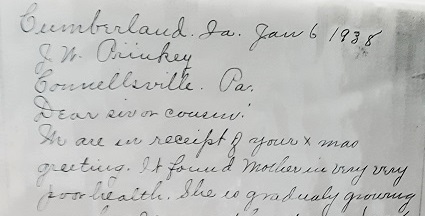 Cumberland. Ia. Jan 6 1938
J. W. Prinkey
Connellsville. Pa.
Dear sir or cousin!
We are in receipt of your x mas
greeting. It found Mother in very very
poor health. She is gradualy growing